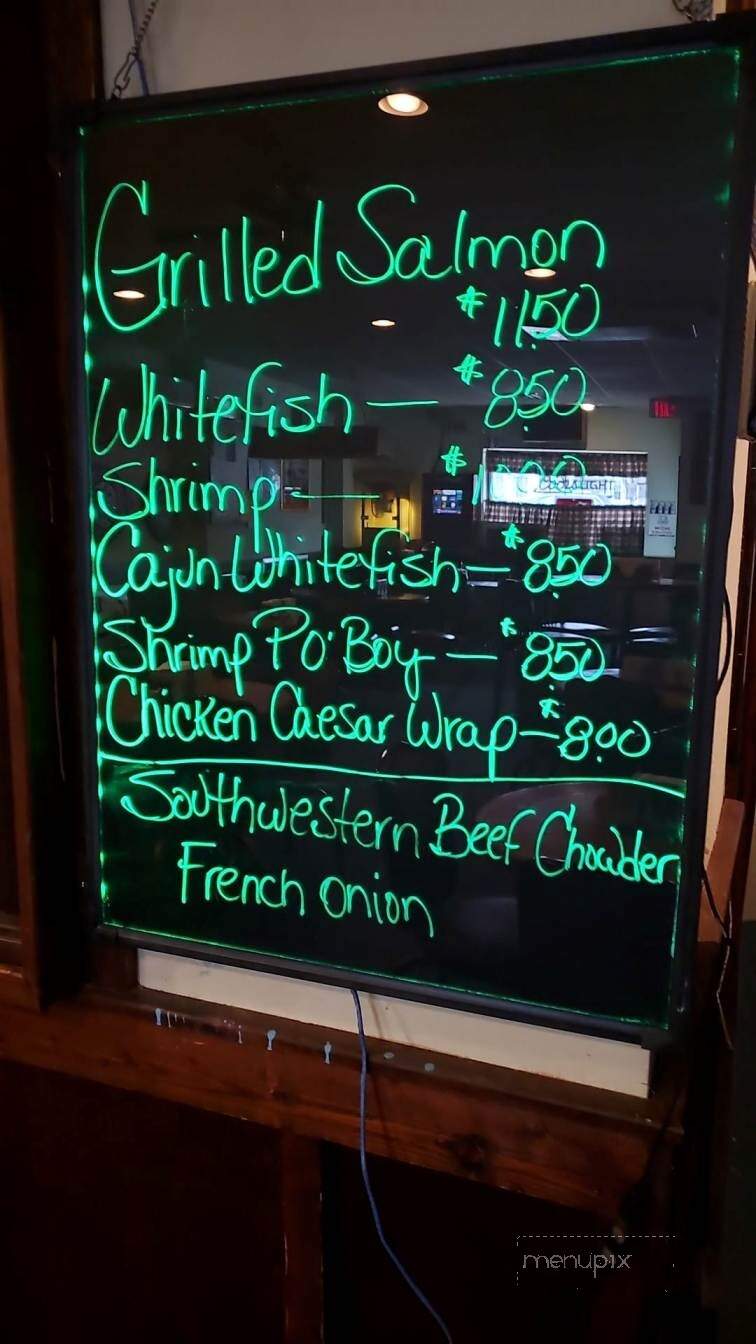 Grilled Salmon
$11.50
Whitefish — $8.50
Shrimp — $
Cajun Whitefish — $8.50
Shrimp Po' Boy — $8.50
Chicken Caesar Wrap — $8.00
Southwestern Beef Chowder
French Onion
menupix